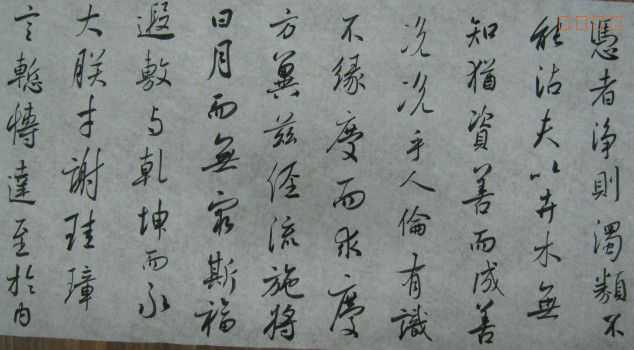 憑者淨則濁類不
能沾夫以卉木無
知猶資善而成善
况况乎人倫有識
不緣慶而求慶
方冀茲經流施將
日月而無窮斯福
遐敷与乾坤而永
大朕才謝珪璋
言慙博達至於内